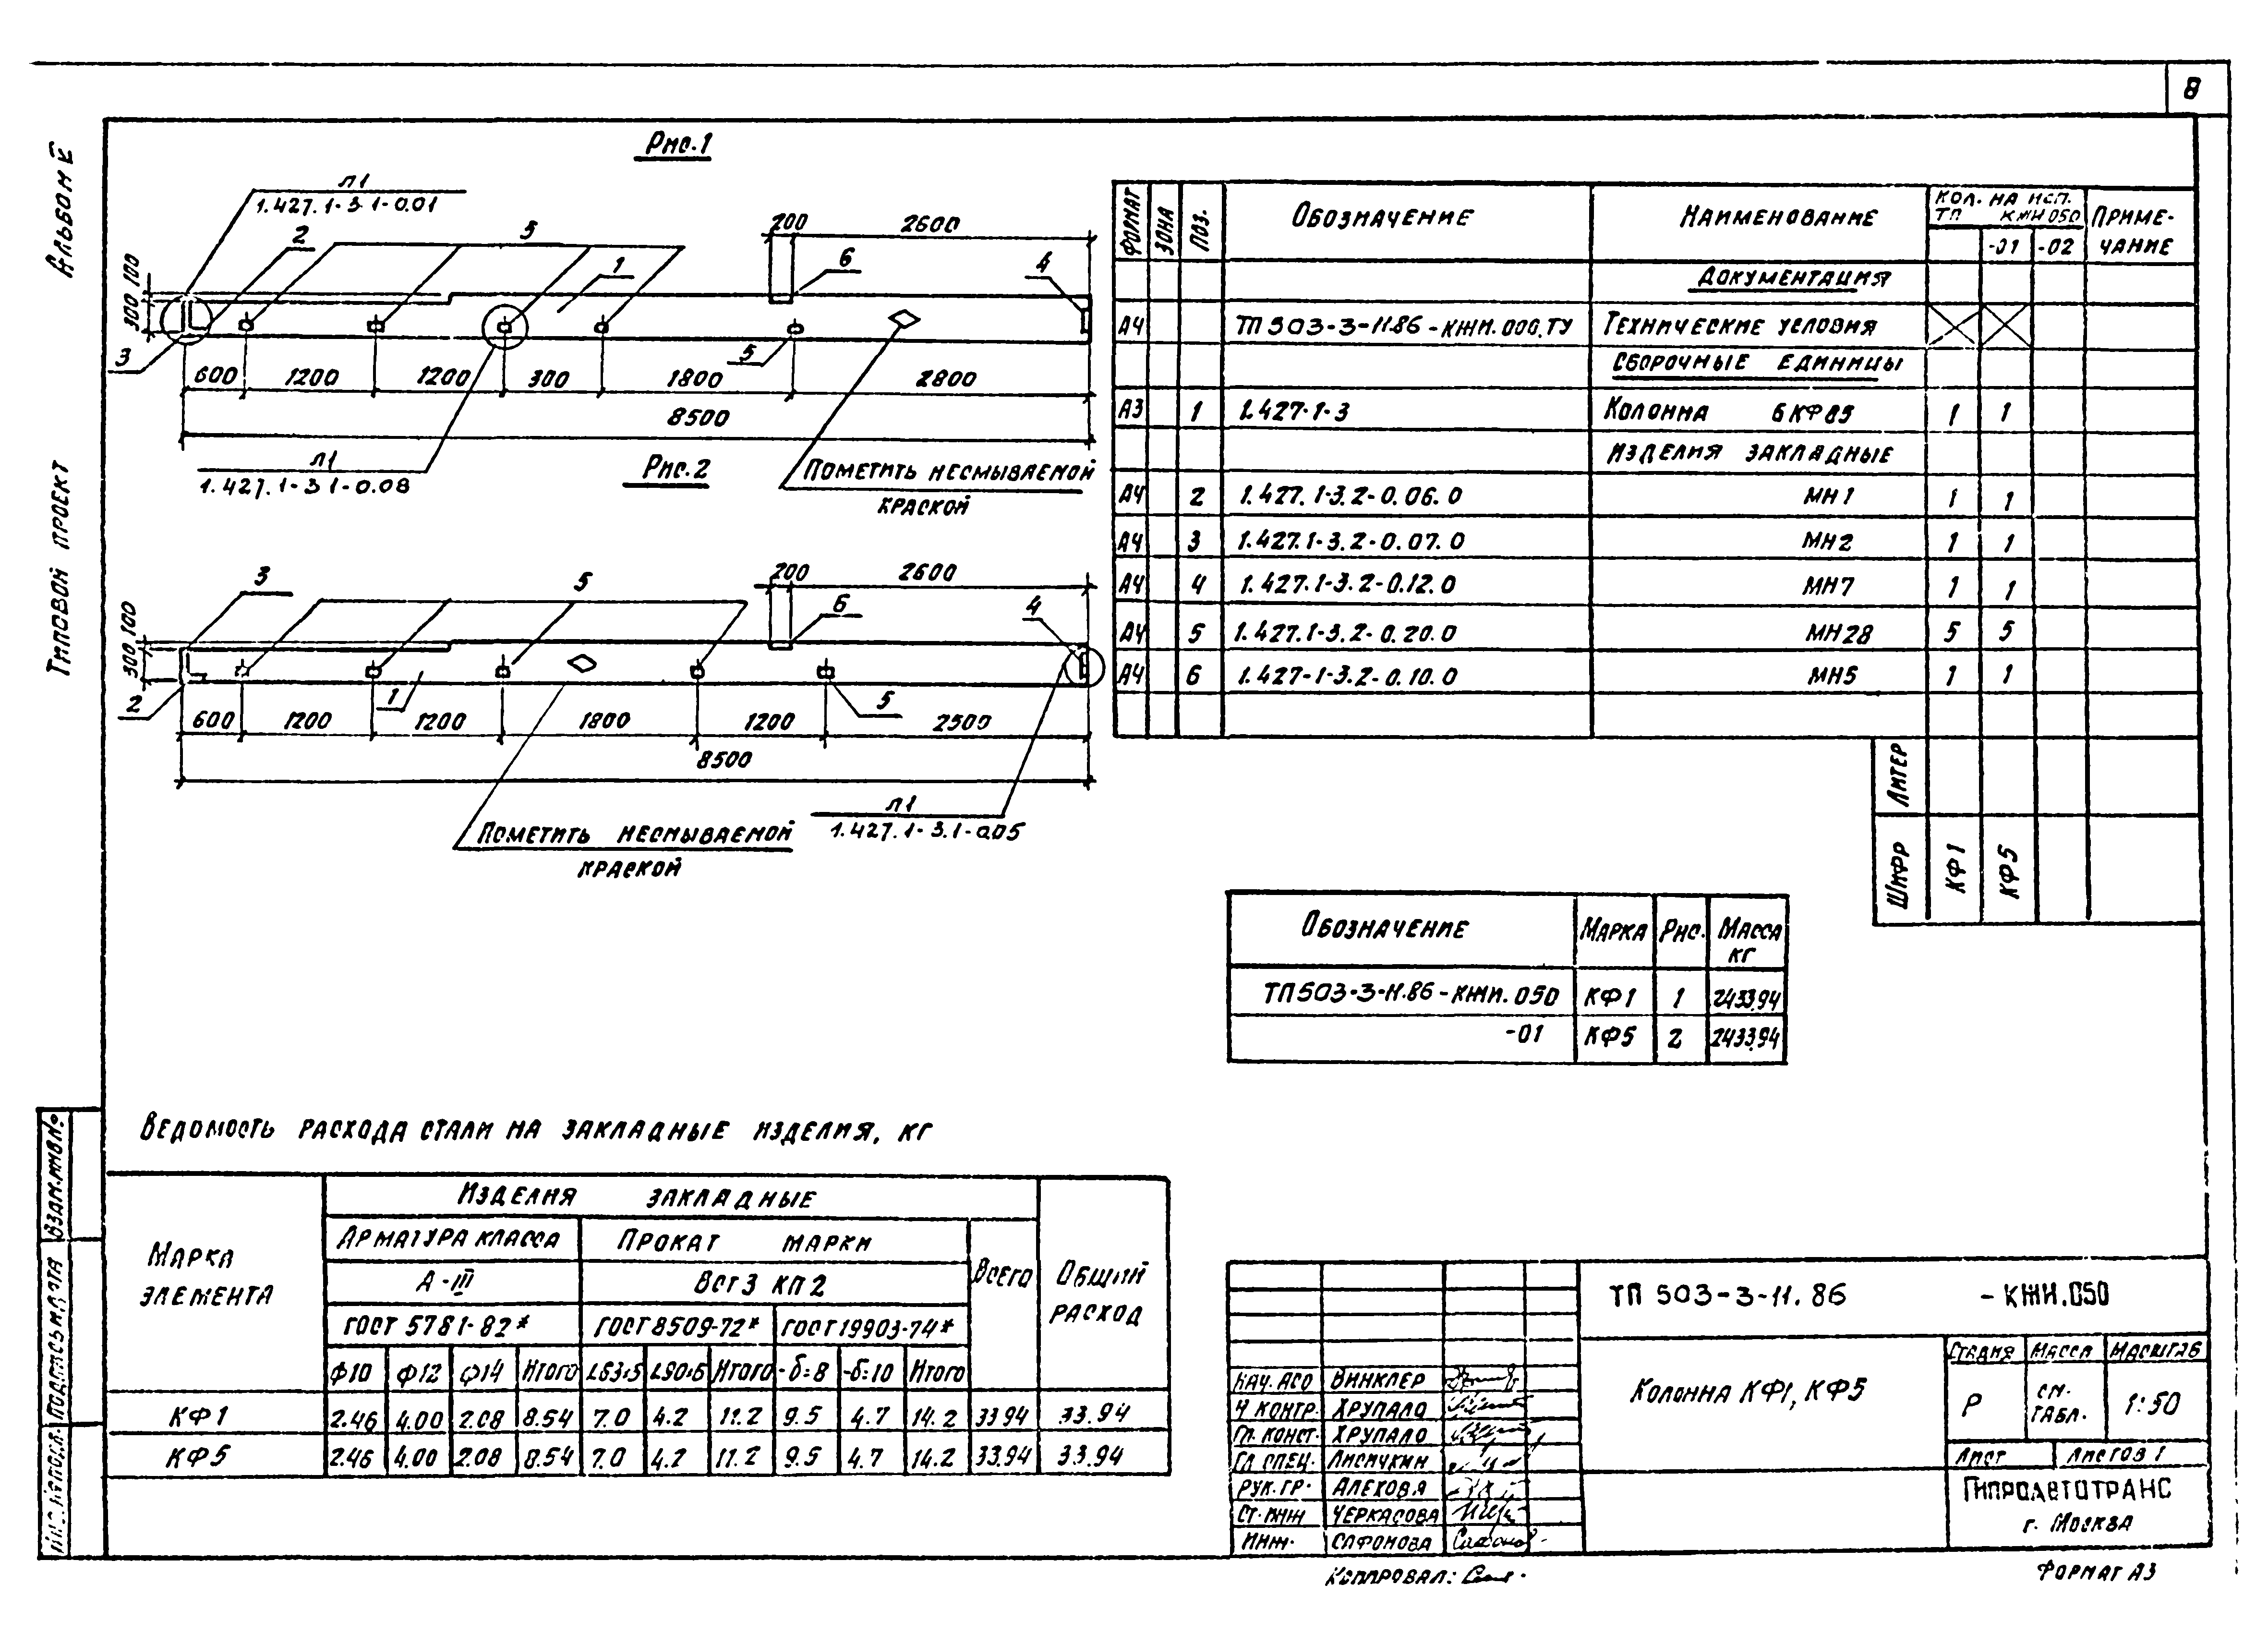 8
Альбом
Типовой проект
Рис.1
л1
1.427.1-3.1-0.01
2
5
1
6
4
3
200
2600
300 100
5
600 1200 1200 300 1800 2800
8500
л1
1.427.1-3.1-0.08
Пометить несмываемой
краской
Рис.2
3
5
6
4
200
2600
300 100
2
1
5
600 1200 1200 1800 1200 2500
8500
Пометить несмываемой
краской
л1
1.427.1-3.1-0.05
Формат Зона Поз. Обозначение Наименование Кол. на исп. ТП КЖИ 050 Приме-
-01 -02 чание
Документация
А4 ТП 503-3-11.86-КЖИ.000.ТУ Технические условия
Сборочные единицы
А3 1 1.427-1-3 Колонна 6КФ85 1 1
Изделия закладные
А4 2 1.427.1-3.2-0.06.0 МН1 1 1
А4 3 1.427.1-3.2-0.07.0 МН2 1 1
А4 4 1.427.1-3.2-0.12.0 МН7 1 1
А4 5 1.427.1-3.2-0.20.0 МН28 5 5
А4 6 1.427-1-3.2-0.10.0 МН5 1 1
Литер
Шифр КФ1 КФ5
Обозначение Марка Рис. Масса
кг
ТП503-3-11.86-КЖИ.050 КФ1 1 2433.94
-01 КФ5 2 2433.94
Ведомость расхода стали на закладные изделия, кг
Марка
элемента
Изделия закладные
Общий
расход
Арматура класса Прокат марки Всего
А-III Вст3 кп2
ГОСТ 5781-82* ГОСТ 8509-72* ГОСТ 19903-74*
Ф10 Ф12 Ф14 Итого L63×5 L90×6 Итого -δ=8 -δ=10 Итого
КФ1 2.46 4.00 2.08 8.54 7.0 4.2 11.2 9.5 4.7 14.2 33.94 33.94
КФ5 2.46 4.00 2.08 8.54 7.0 4.2 11.2 9.5 4.7 14.2 33.94 33.94
Взам.инв№
Подпись и дата
Инв.№подл.
ТП 503-3-11.86 -КЖИ.050
Колонна КФ1, КФ5
Стадия Масса Масштаб
Р см. табл. 1:50
Лист Листов 1
Гипроавтотранс
г. Москва
Нач. АСО Винклер
Н.контр. Хрупало
Гл. конст. Хрупало
Гл. спец. Лисичкин
Рук. гр. Алехова
Ст. инж Черкасова
Инж. Сафонова
Копировал:
Формат А3